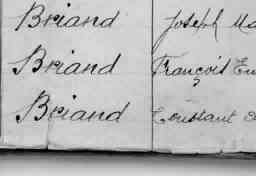 Briand Joseph Ma
Briand François Eu
Briand Constant